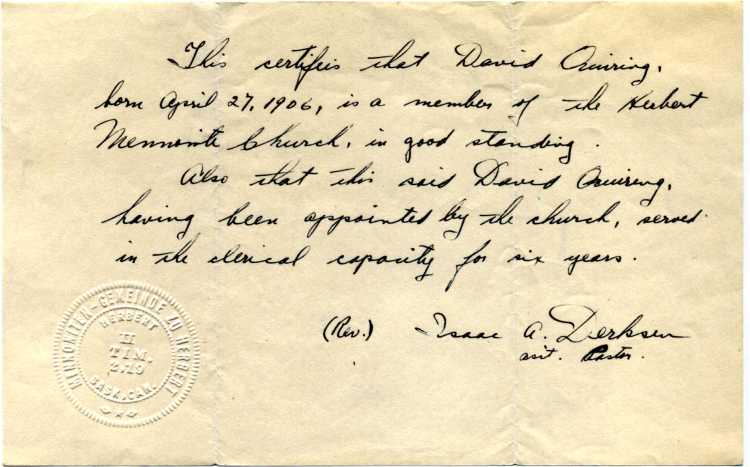 This certifies that David Quiring,
born April 27, 1906, is a member of the Herbert
Mennonite Church, in good standing.
Also that this said David Quiring,
having been appointed by the church, served
in the clerical capacity for six years.
(Rev.) Isaac A. Derksen
asst. Pastor.
MENNONITEN-GEMEINDE ZU HERBERT
HERBERT
II
TIM.
2.19
SASK. CAN.